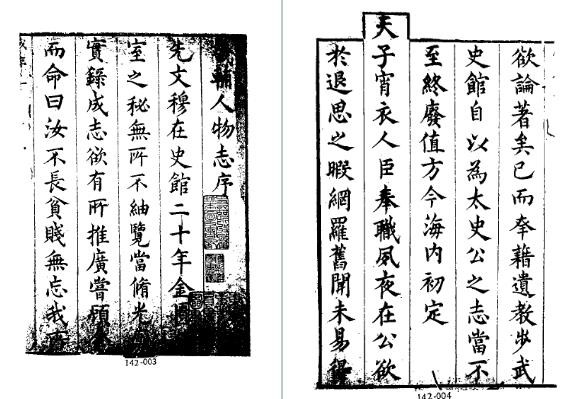 輔人物志序
先文穆在史館二十年金匱
室之秘無所不紬覽當脩光
實錄成志欲有所推廣嘗顧
而命曰汝不長貧賤無忘我
142-003
欲論著矣已而奉藉遺教步武
史館自以為太史公之志當不
至終廢值方今海內初定
天子宵衣人臣奉職夙夜在公欲
於退思之暇網羅舊聞未易得
142-004